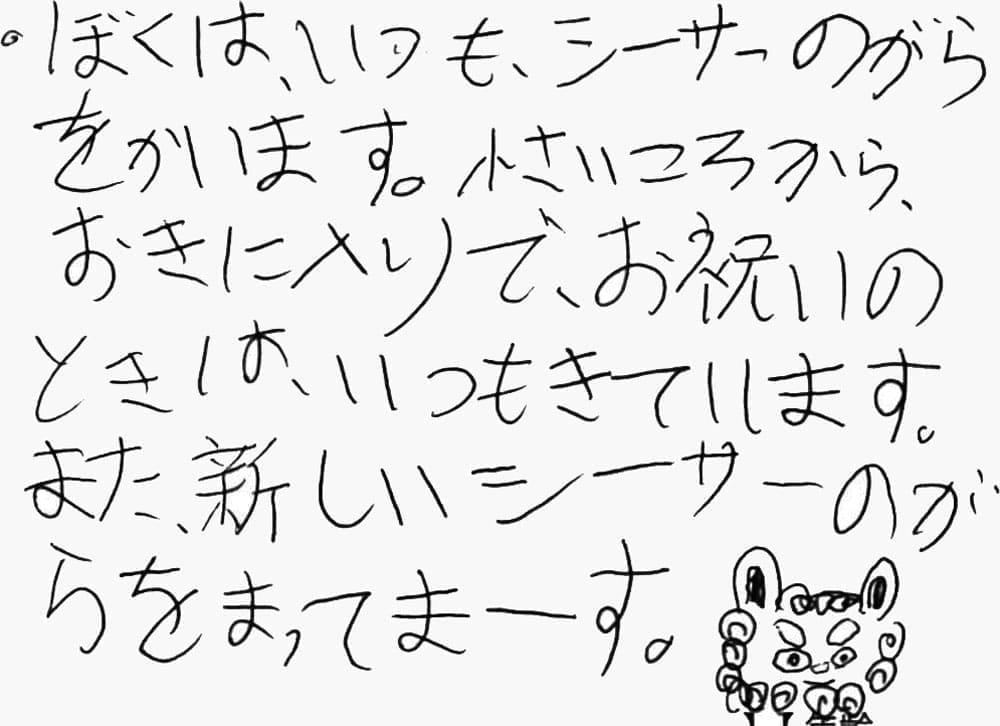 ・ぼくは、いつも、シーサーのがら
をかいます。小さいころから、
おきに入りで、お祝いの
ときは、いつもきています。
また、新しいシーサーのが
らをまってまーす。